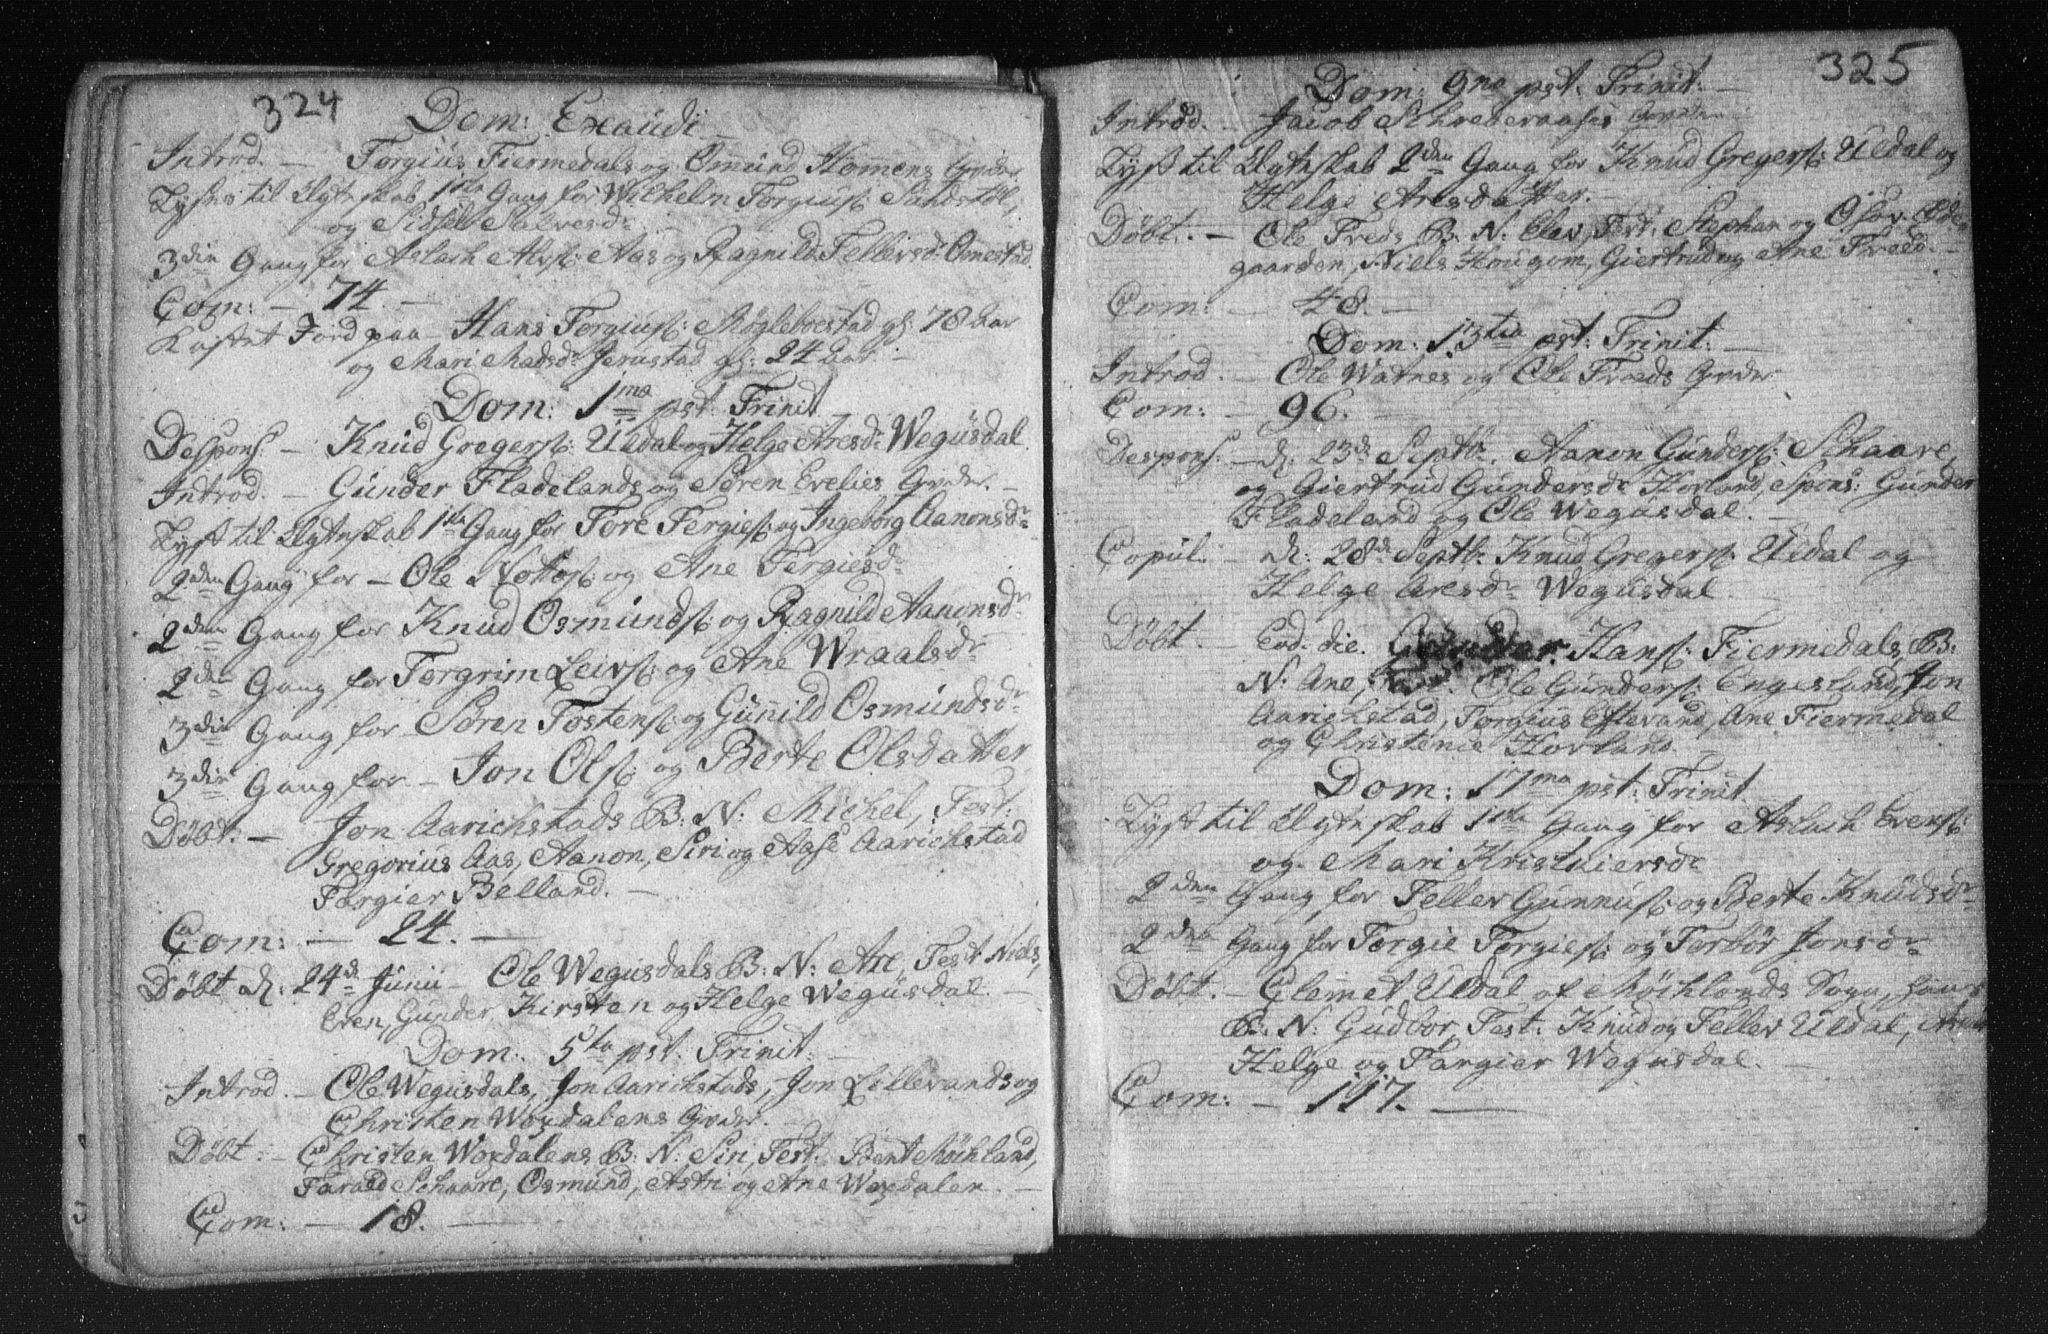 324
Dom: Exaudi
Introd. – Torgius Fiermedals og Omund Homens Qvder
Lyses til Ægtnskab 1ste Gang for Wilhelm Torgius: Sandstøl,
og Sidsel Salvesdr
3die Gang for Aslach Alfs: Aas og Ragnild Tellevsd: Omestad
Com: – 74. –
Kastet Jord paa – Hans Torgius: Møgleboestad gl: 78 aar
og Mari Madsdr Jerustad gl: 24 aar –
Dom: 1ma pst: Trinit
Despons – Knud Gregers: Uldal og Helge Aresdr Wegusdal
Introd. – Gunder Fladelands og Søren Evelies Qvder –
Lyst til Ægtnskab 1ste Gang for Tore Tergies: og Ingeborg Aanonsdr
2den Gang for – Ole Nottos: og Ane Tergiesdr
2den Gang for Knud Osmunds: og Ragnild Aanonsdr
2den Gang for Torgrim Leivs: og Ane Wraalsdr
3die Gang for Søren Tostens: og Gunnild Osmundsdr
3die Gang for – Jon Ols: og Berte Olsdatter
Døbt: – Jon Aarichstads B: N: Michel, Test:
Gregorius Aas, Aanon, Siri og Aase Aarichstad
Targier Belland. –
Com: – 24. –
Døbt d. 24d Junii – Ole Wegusdals B: N: Are, Test Niels,
Even, Gunder Kirsten og Helge Wegusdal. –
Dom: 5ta pst: Trinit: –
Introd. – Ole Wegusdals, Jon Aarichstads, Jon Lillevands og
Christen Woxdalens Qvder. –
Døbt: – Christen Woxdalens B: N: Siri, Test: Bent Møchland,
Tarald Schaare, Osmund, Astri og Ane Woxdalen. –
Com: – 18. –
325
Dom: 9na pst: Trinit: –
Introd. – Jacob Schreberaases
Lyst til Ægtnskab 2den Gang for Knud Gregers: Uldal og
Helge Aresdatter. –
Døbt. – Ole Treds B: N: Olav, Test: Stephan og
gaarden, Niels Hougom, Giertrud og Ane Træd. –
Com: – 48. –
Dom: 13tia pst: Trinit: –
Introd. – Ole Watnes og Ole Træds Qvder
Com: – 96. –
Despons: – d. 23d Septbr. Aanon Gunders: Schaare,
og Giertrud Gundersdr Horland, Spons: Gunder
Fladeland og Ole Wegusdal. –
Copul: d. 28d Septbr Knud Gregers: Uldal og
Helge Aresdr Wegusdal –
Døbt. – Eod: die. Hans: Fiermedals B:
N: Ane, Ole Gunders: Engesland, Jon
Aarichstad, Torgius Eftevand, Ane Fiermedal
og Christenie Horland –
Dom: 17ma pst: Trinit
Lyst til Ægtnskab 1ste Gang for Aslach Evens:
og Mari Kristuiersdr
2den Gang for Tellev Gunnus: og Berte Knudsdr
2den Gang for Torgie Torgies: og Torbør Jonsdr
Døbt. – Clemet Uldal af Møchlands Sogn, hans
B: N: Gudbor, Test: Knud og Tellev Uldal,
Helge og Targier Wegusdal. –
Com: – 117. –